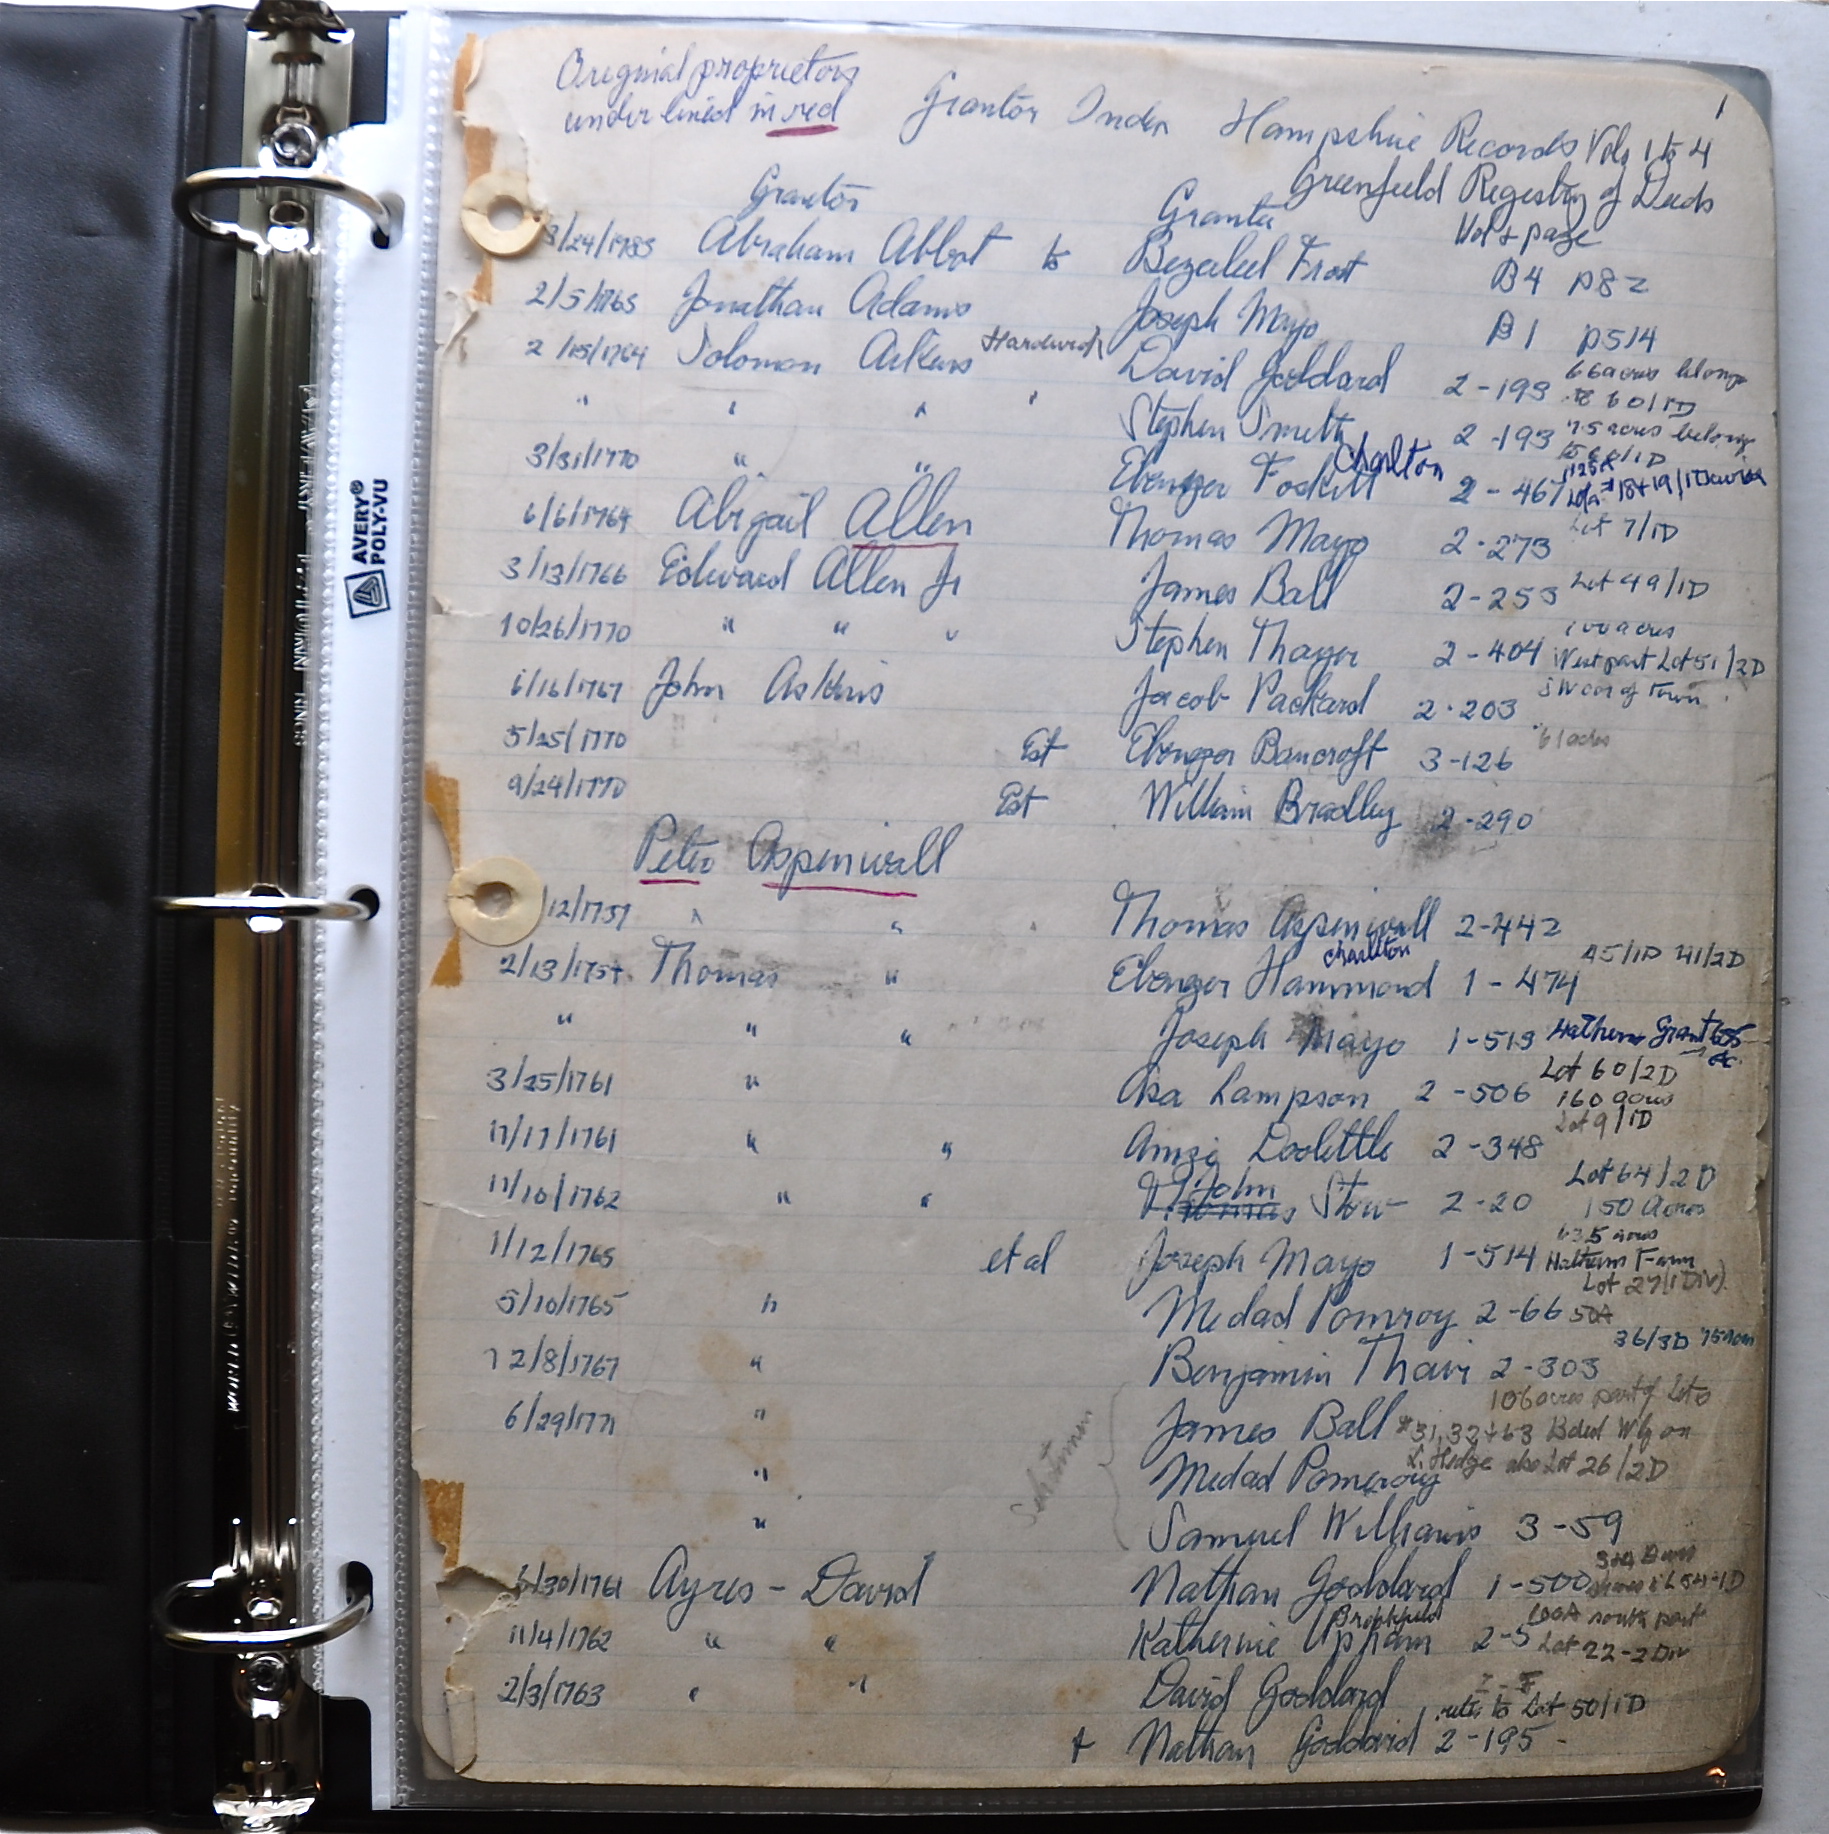 Original proprietors
underlined in red
Grantor Index Hampshire Records Vols 1 to 4
1
Greenfield Registry of Deeds
Grantor Grantee Vol + page
3/24/1785 Abraham Abbot to Bezeleel Frost B4 p82
2/5/1765 Jonathan Adams Joseph Mayo B1 p514
2/15/1764 Solomon Aikens Hardwick David Goddard 2-193 66 acres belong
to 60/1D
" " " " Stephen Smith 2-193 7.5 acres belong
to 66/1D
3/31/1770 " " Ebenezer Foskitt Charlton 2-467
Lots # 18+19/1
6/6/1764 Abigail Allen Thomas Mayo 2-273 Lot 7/1D
3/13/1766 Edward Allen Jr James Ball 2-253 Lot 49/1D
10/26/1770 " " " Stephen Thayer 2-404 100 acres
West part Lot 51/2D
6/16/1767 John Askins Jacob Packard 2-203 SW cor of Town
5/25/1770 Est Ebenezer Bancroft 3-126 61 acres
9/24/1770 Est William Bradley 2-290
Peter Aspenwall
12/1751 " " " Thomas Aspenwall 2-442
2/13/1754 Thomas " Ebenezer Hammond Charlton 1-474 45/1D 41/2D
" " " Joseph Mayo 1-519 Hatherns Grant
3/25/1761 " Asa Lampson 2-506 Lot 60/2D
160 acres
11/17/1761 " " Amzi Doolittle 2-348 Lot 9/1D
11/10/1762 " " John Stow 2-20 Lot 64/2D
150 Acres
1/12/1765 et al Joseph Mayo 1-514 635 acres
Hatherns Farm
5/10/1765 " Medad Pomroy 2-66 50A Lot 27(1Div)
12/8/1767 " Benjamin Thair 2-303 36/3D 75 acres
6/29/1771 " James Ball 106 acres part of Lots
#31, 32+63 Bded Wly on
" Medad Pomeroy L. Hedge also Lot 26/2D
Selectmen
" Samuel Williams 3-59
6/30/1761 Ayres - David Nathan Goddard 1-500
11/4/1762 " " Katherine Upham Brookfield 2-5 100A south part
Lot 22-2Div
2/3/1763 " " David Goddard
refers to Lot 50/1D
+ Nathan Goddard 2-195
AVERY®
POLY-VU